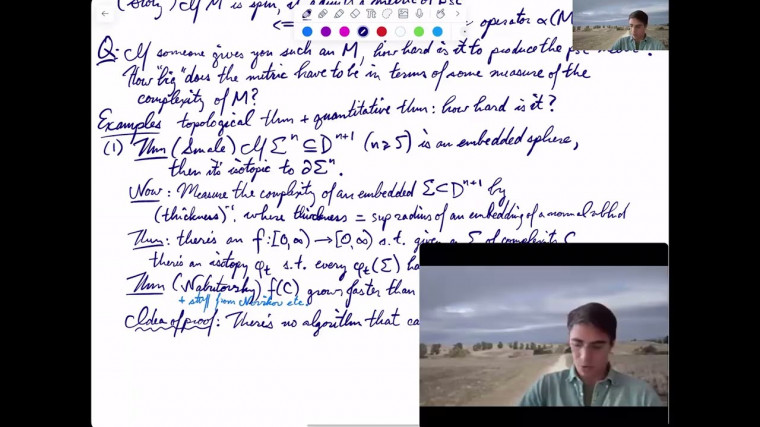 (Stolz) If M is spin, it admits a metric of psc
operator α(M
Q: If someone gives you such an M, how hard is it to produce the psc
How "big" does the metric have to be in terms of some measure of the
complexity of M?
Examples topological thm + quantitative thm: how hard is it?
(1) Thm (Smale) If Σⁿ ⊆ Dⁿ⁺¹ (n≥5) is an embedded sphere,
then it's isotopic to ∂Dⁿ⁺¹.
Now: Measure the complexity of an embedded Σ⊂Dⁿ⁺¹ by
(thickness)⁻¹, where thickness = sup radius of an embedding of a normal nbhd
Thm: there's an f:[0,∞)→[0,∞) s.t. given an Σ of complexity C
there's an isotopy φₜ s.t. every φₜ(Σ) ha
Thm (Nabutovsky) f(C) grows faster than
+ stuff from Novikov etc.
Idea of proof: There's no algorithm that ca